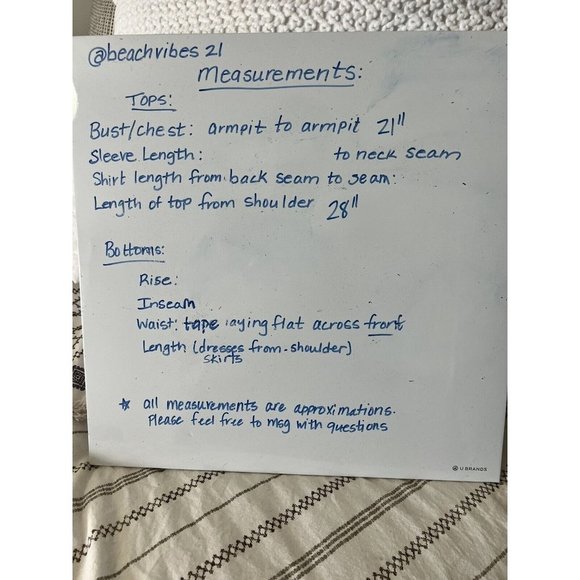 @beachvibes 21
Measurements:
TOPS:
Bust/chest: armpit to armpit 21"
Sleeve Length: to neck seam
Shirt length from back seam to seam:
Length of top from shoulder 28"
Bottoms:
Rise:
Inseam
Waist: tape laying flat across front
Length (dresses from shoulder)
skirts
☆ all measurements are approximations.
Please feel free to msg with questions
U BRANDS